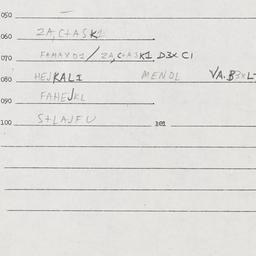 050
060 ZA,C+ASK1
070 FAMAXD1/ZA,C+ASK1 D3XC1
080 HEJKAL1 MENDL VA.B3XL-
090 FAHEJKL
100 S+LAJFU 101